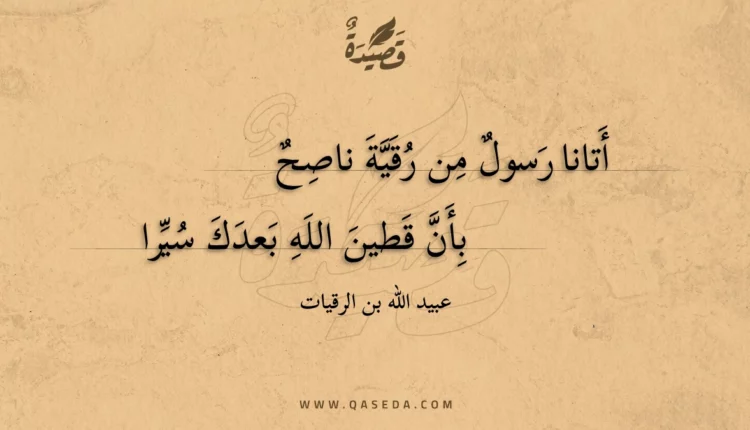 قَصِيدَةٌ
أَتانا رَسولٌ مِن رُقَيَّةَ ناصِحٌ
بِأَنَّ قَطينَ اللَهِ بَعدَكَ سُيِّرا
عبيد الله بن الرقيات
WWW.QASEDA.COM